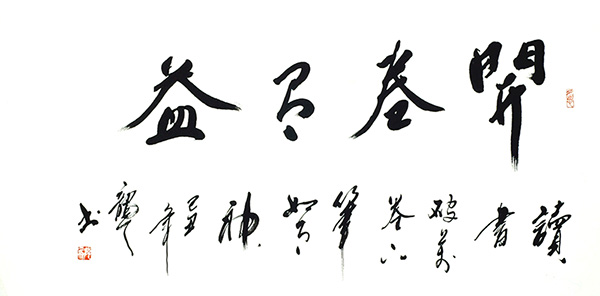 開卷有益
讀書破萬卷下筆如有神 己丑年 书